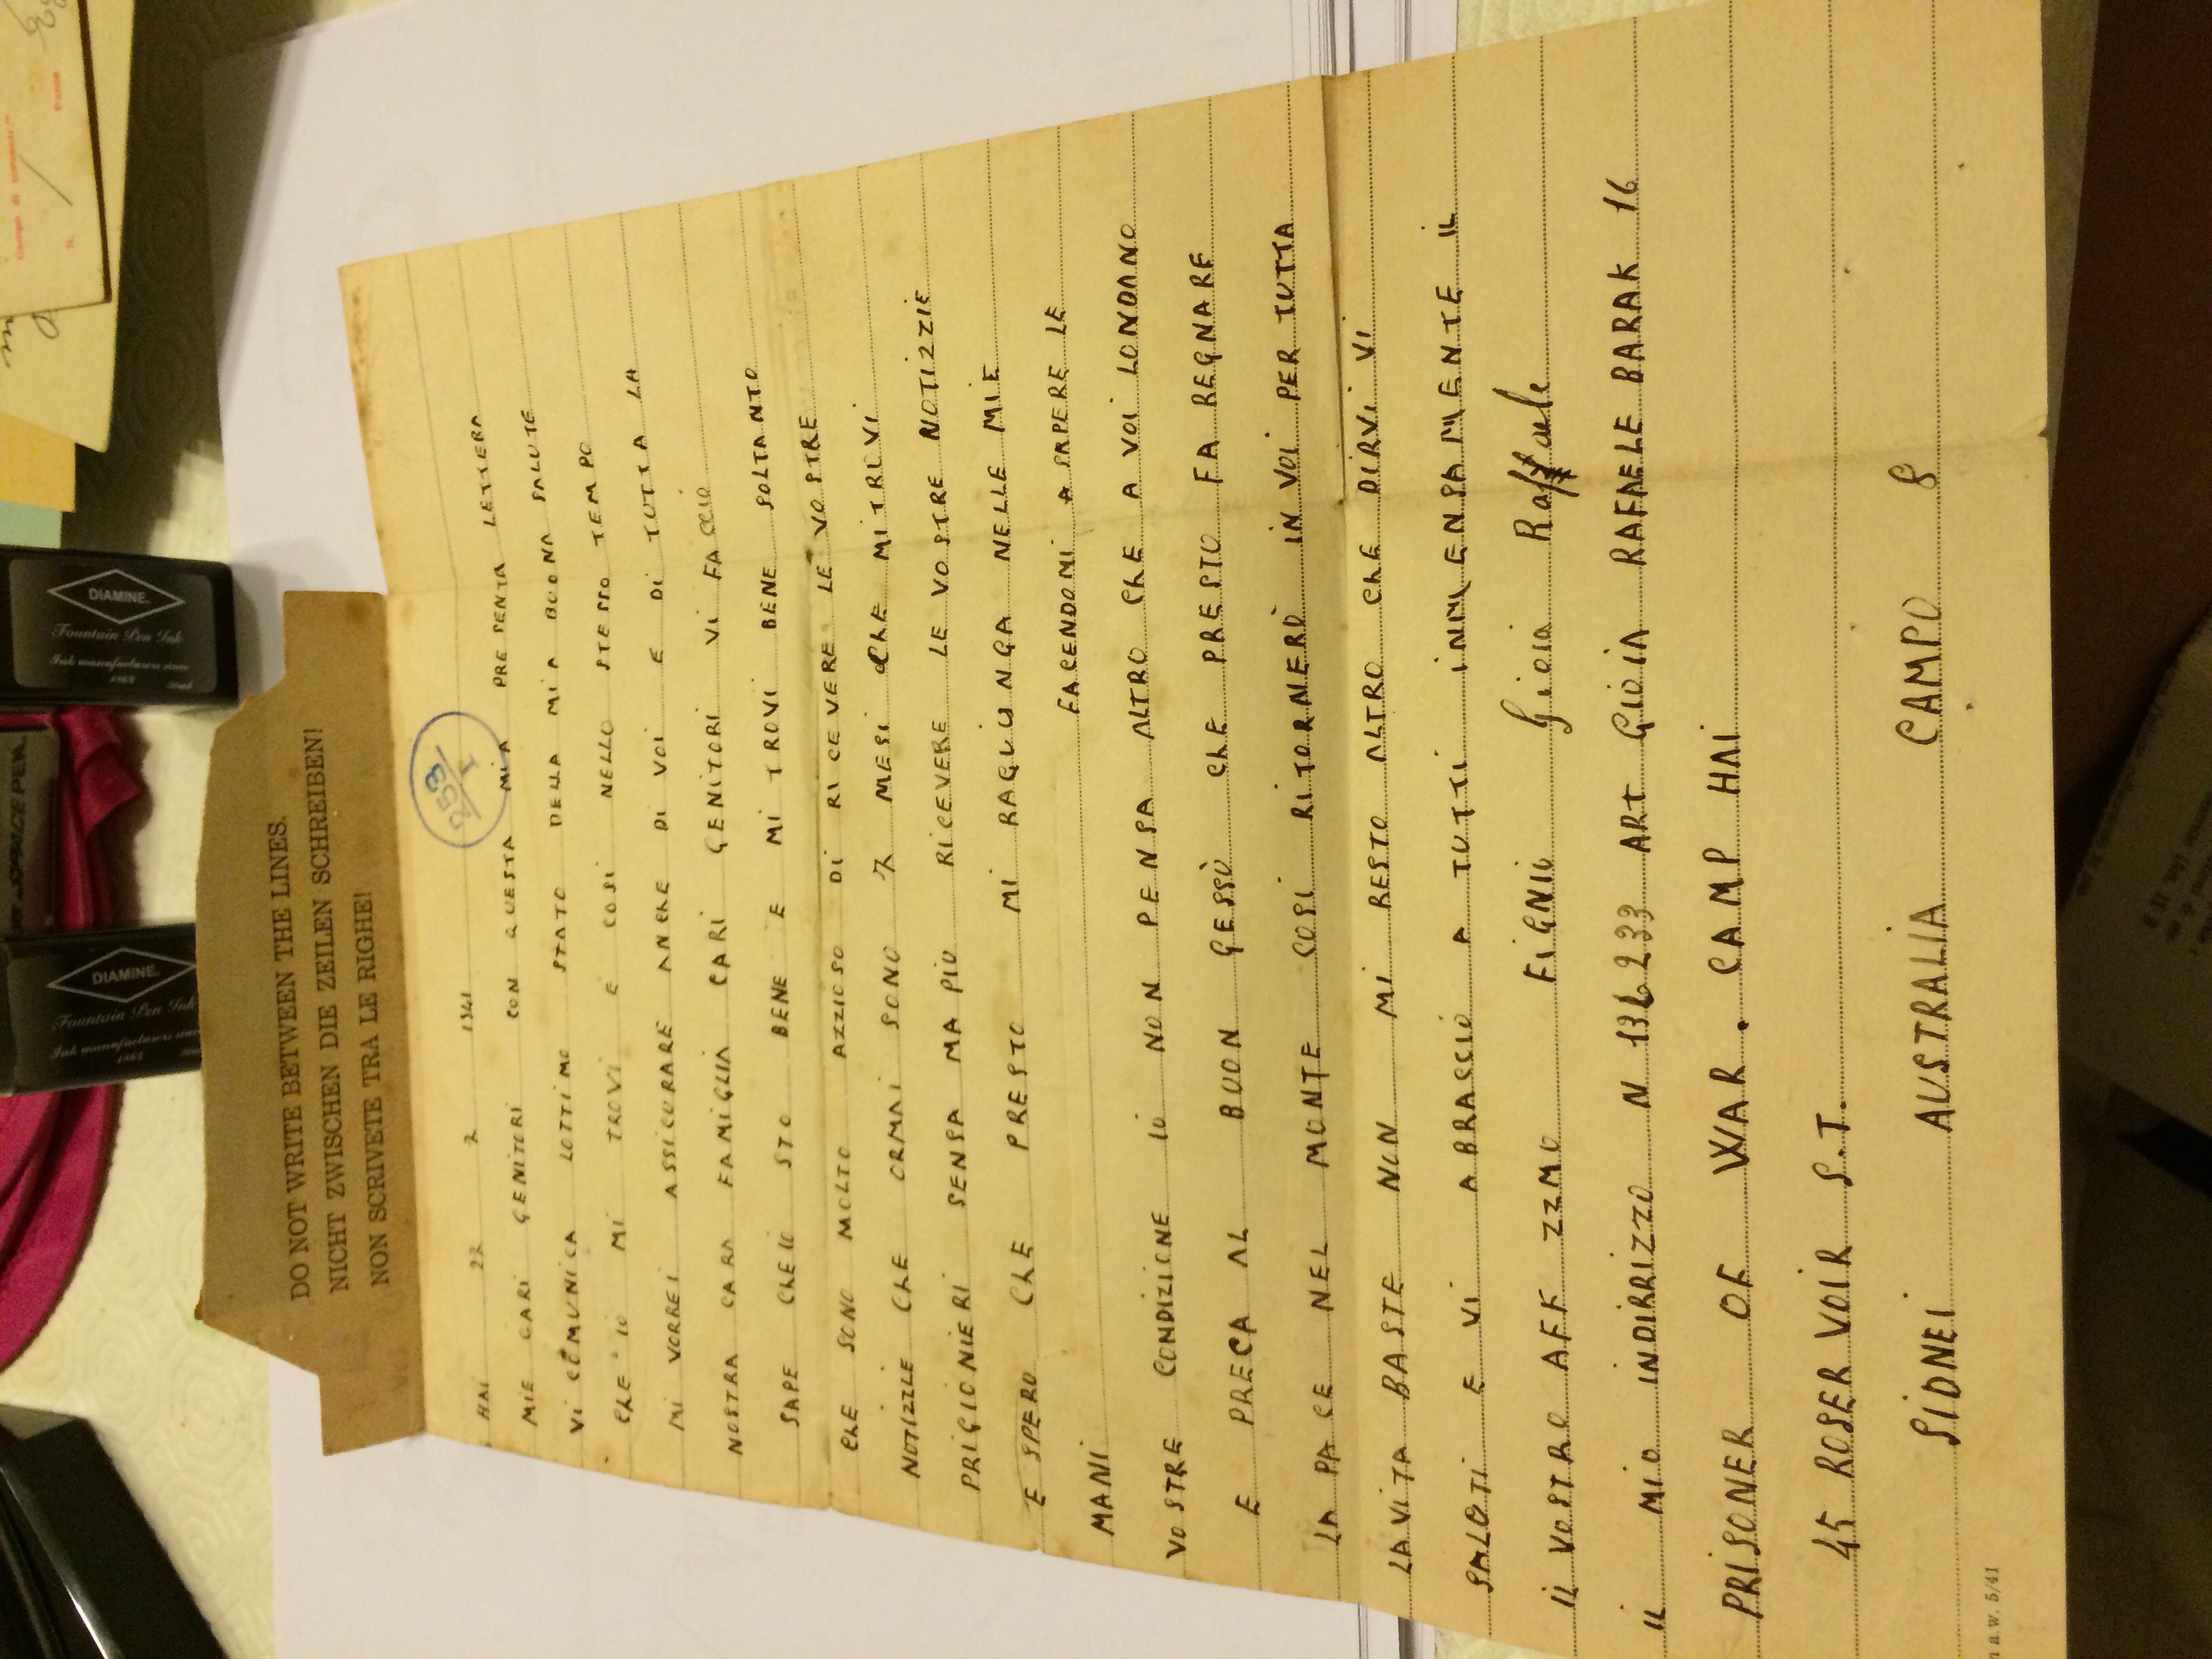 DO NOT WRITE BETWEEN THE LINES.
NICHT ZWISCHEN DIE ZEILEN SCHREIBEN!
NON SCRIVETE TRA LE RIGHE!
HAI 22 7 1941
MIE CARI GENITORI CON QUESTA MIA PRESENTA LETTERA
VI COMUNICA LOTTIMO STATO DELLA MIA BUONA SALUTE
CHE IO MI TROVI E COSI NELLO STESSO TEMPO
MI VORREI ASSICURARE ANCHE DI VOI E DI TUTTA LA
NOSTRA CARA FAMIGLIA CARI GENITORI VI FACCIO
SAPE CHEIO STO BENE E MI TROVI BENE SOLTANTO
CHE SONO MOLTO AZZIOSO DI RICEVERE LE VOSTRE
NOTIZZLE CHE ORMAI SONO 7 MESI CHE MITROVI
PRIGIONIERI SENSA MA PIU RICEVERE LE VOSTRE NOTIZZIE
E SPERO CHE PRESTO MI RAGIUNGA NELLE MIE
MANI FACENDOMI A SAPERE LE
VOSTRE CONDIZIONE IO NON PENSA ALTRO CHE A VOI LONDANO
E PRECA AL BUON GESSÙ CHE PRESTO FA REGNARE
LA PACE NEL MONTE COSI RITORNERÒ IN VOI PER TUTTA
LA VITA BASTE NON MI RESTO ALTRO CHE DIRVI VI
SALOTI E VI ABRASCIO A TUTTI INMENSAMENTE IL
IL VOSTRO AFF ZZMO FIGNIO Gioia Raffaele
IL MIO INDIRRIZZO N 136.233 ART GIOIA RAFAELE BARAK 16
PRISONER OF WAR. CAMP HAI
45 ROSERVOIR S.T.
SIDNEI AUSTRALIA CAMPO 8
a.w. 5/41
DIAMINE
Fountain Pen Ink
Ink manufacturers since
1864
DIAMINE
Fountain Pen Ink
Ink manufacturers since
1864
SPACE PEN
Campo di